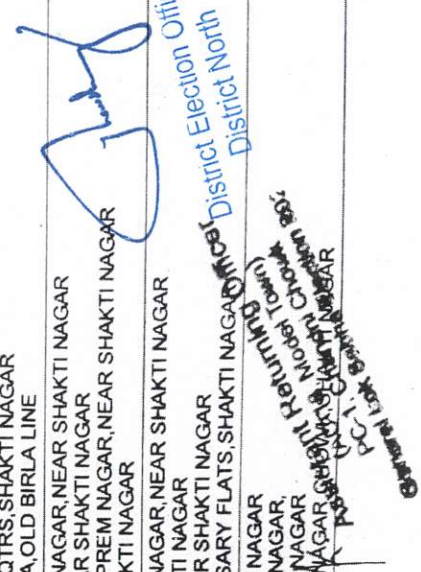 QTRS,SHAKTI NAGAR
A,OLD BIRLA LINE
NAGAR,NEAR SHAKTI NAGAR
R SHAKTI NAGAR
PREM NAGAR,NEAR SHAKTI NAGAR
KTI NAGAR
NAGAR,NEAR SHAKTI NAGAR
TI NAGAR
R SHAKTI NAGAR
SARY FLATS,SHAKTI NAGAR
NAGAR
NAGAR,
NAGAR
NAGAR
District Election Offi
District North
nt Returning Officer
Model Town)
Chowk
PC-1,
Lok Sabha